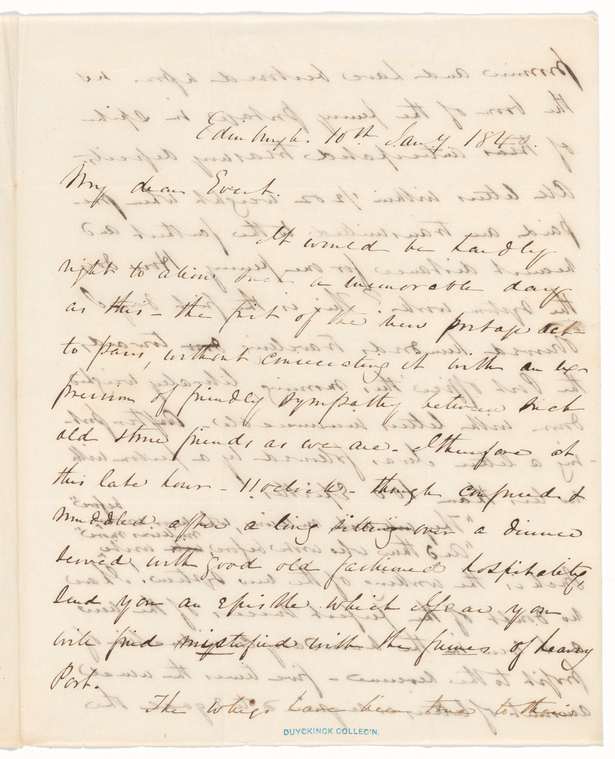 Edinburgh. 10th Jany 1840.
My dear Evert.
It would be hardly
right to allow such a memorable day
as this - the first of the new postage act
to pass, without consecrating it with an ex-
pression of friendly sympathy between such
old friends as we are. I therefore at
this late hour - 11 o'clock - though confused &
muddled after a long sitting over a dinner
served with good old fashioned hospitality
send you an Epistle which I fear you
will find mistified with the fumes of heavy
Port.
The Whigs have been true to their
DUYCKINCK COLLEC'N.